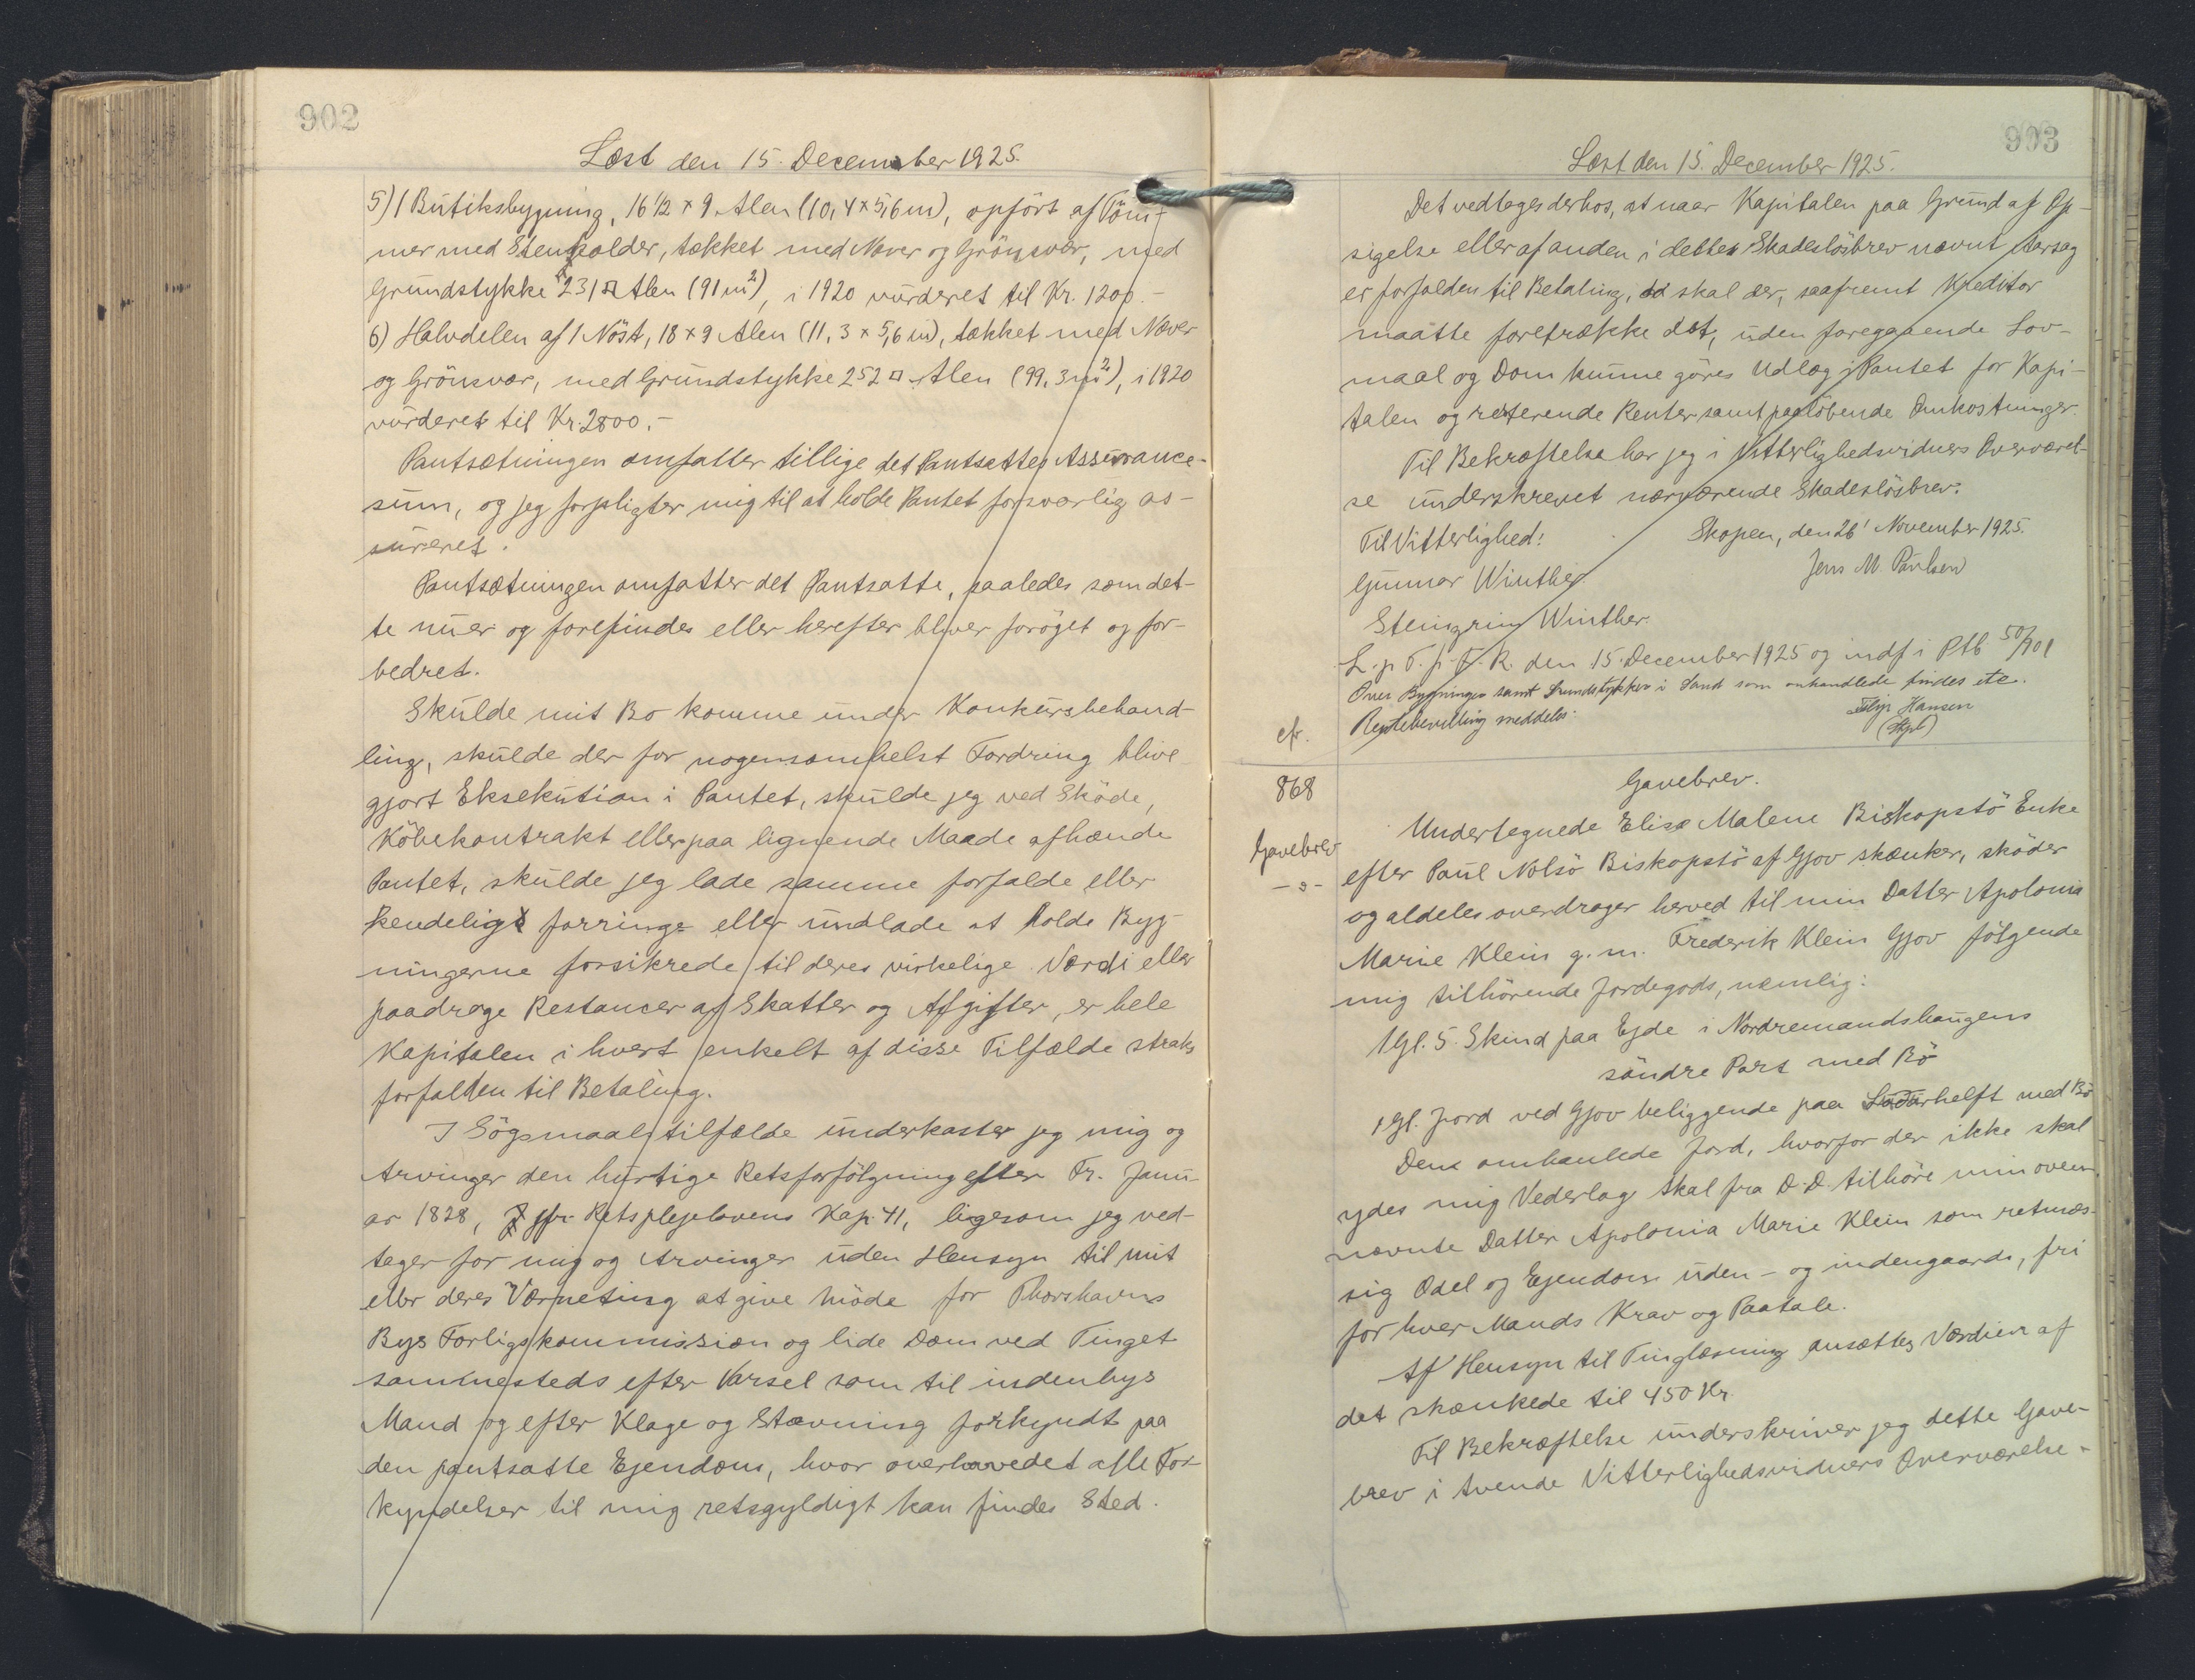 902
Læst den 15. December 1925.
5) 1 Butiksbygning, 16 1/2 x 9 Alen (10,4 x 5,6 m), opført af Töm-
mer med Stenkælder, tækket med Næver og Grönsvær, med
Grundstykke 231 □ Alen (91 m²), i 1920 vurderet til Kr. 1200.-
6) Halvdelen af 1 Nöst, 18 x 9 Alen (11,3 x 5,6 m), tækket med Næver
og Grönsvær, med Grundstykke 252 □ Alen (99,3 m²), i 1920
vurderet til Kr. 2800.-
Pantsætningen omfatter tillige det Pantsattes Assurance-
sum, og jeg forpligter mig til at holde Pantet forsvarlig as-
sureret.
Pantsætningen omfatter det Pantsatte, saaledes som det-
te nu er og forefindes eller herefter bliver forøget og for-
bedret.
Skulde mit Bo komme under Konkursbehand-
ling, skulde der for nogensomhelst Fordring blive
gjort Eksekution i Pantet, skulde jeg ved Sköde,
Köbekontrakt eller paa lignende Maade afhænde
Pantet, skulde jeg lade samme forfalde eller
kendelig forringe eller undlade at holde Byg-
ningerne forsikrede til deres virkelige Værdi eller
paadrage Restancer af Skatter og Afgifter, er hele
Kapitalen i hvert enkelt af disse Tilfælde straks
forfalden til Betaling.
I Sögsmaalstilfælde underkaster jeg mig og
Arvinger den hurtige Retsforfölgning efter Fr. Janu-
ar 1828, jfr. Retsplejelovens Kap. 41, ligesom jeg ved-
tager for mig og Arvinger uden Hensyn til mit
eller deres Værneting at give Möde for Thorshavns
Bys Forligskommission og lide Dom ved Tinget
sammesteds efter Varsel som til indenbys
Mand og efter Klage og Stævning forkyndt paa
den pantsatte Ejendom, hvor overhovedet alle For-
kyndelser til mig retsgyldigt kan finde Sted.
903
Læst den 15. December 1925.
Det vedtages derhos, at naar Kapitalen paa Grund af Op-
sigelse eller af anden i dette Skadeslösbrev nævnt Aarsag
er forfalden til Betaling, skal der, saafremt Kreditor
maatte foretrække det, uden foregaaende Lov-
maal og Dom kunne göres Udlæg i Pantet for Kapi-
talen og resterende Renter samt paalöbende Omkostninger.
Til Bekræftelse har jeg i Vitterlighedsvidners Overværel-
se underskrevet nærværende Skadeslösbrev.
Til Vitterlighed! Skopen, den 26' November 1925.
Gunnar Winther. Jens M. Paulsen
Steingrim Winther.
L. p. T. p. F. R. den 15. December 1925 og indf i Ptb 50/701
Over Bygninger samt Grundstykker i Sand som omhandlede findes ete.
cfr. Rentebevilling meddeles. Filip Hansen
(Kpl)
868 Gavebrev.
Gavebrev
- 0 -
Undertegnede Elisa Malene Biskopstö Enke
efter Paul Nolsö Biskopstö af Gjov skænker, sköder
og aldeles overdrager herved til min Datter Apolonia
Marie Klein g. m. Frederik Klein Gjov fölgende
mig tilhörende Jordegods, nemlig:
1 Gl. 5 Skind paa Ejde i Nordremandshaugens
söndre Part med Bö
1 Gl. Jord ved Gjov beliggende paa Ludurhelft med Bö
Den omhandlede Jord, hvorfor der ikke skal
ydes mig Vederlag skal fra D. D. tilhöre min oven
nævnte Datter Apolonia Marie Klein som retmæs-
sig Odel og Ejendom uden- og indengaards, fri
for hver Mands Krav og Paatale.
Af Hensyn til Tinglæsning ansættes Værdien af
det skænkede til 450 Kr.
Til Bekræftelse underskriver jeg dette Gave-
brev i tvende Vitterlighedsvidners Overværelse.